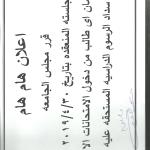 اعلان هام هام
قرر مجلس الجامعه
جلسته المنعقده بتاريخ ٢٠١٩/٤/٣٠
ان اى طالب من دخول الامتحانات الا
سداد الرسوم الدراسيه المستحقه عليه